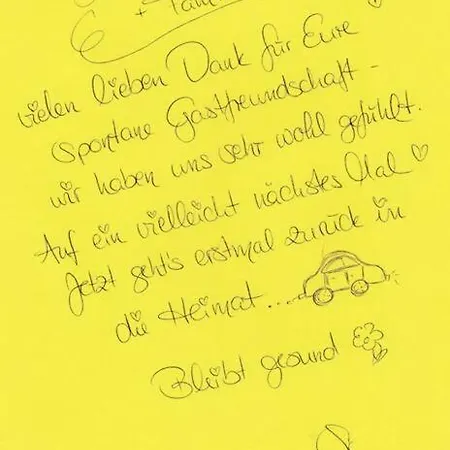 + Fam
vielen lieben Dank für Eure
spontane Gastfreundschaft -
wir haben uns sehr wohl gefühlt.
Auf ein vielleicht nächstes Mal ♡
Jetzt geht's erstmal zurück in
die Heimat...
Bleibt gesund